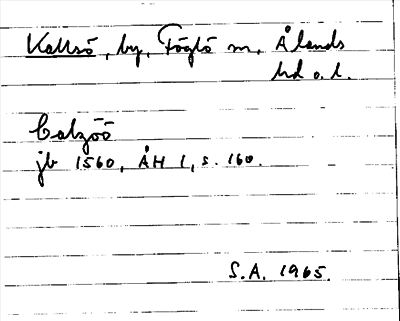 Kallsö, by, Föglö sn, Ålands
hd o. l.
Calzöö
jb 1560, ÅH 1, s. 160.
S.A. 1965.